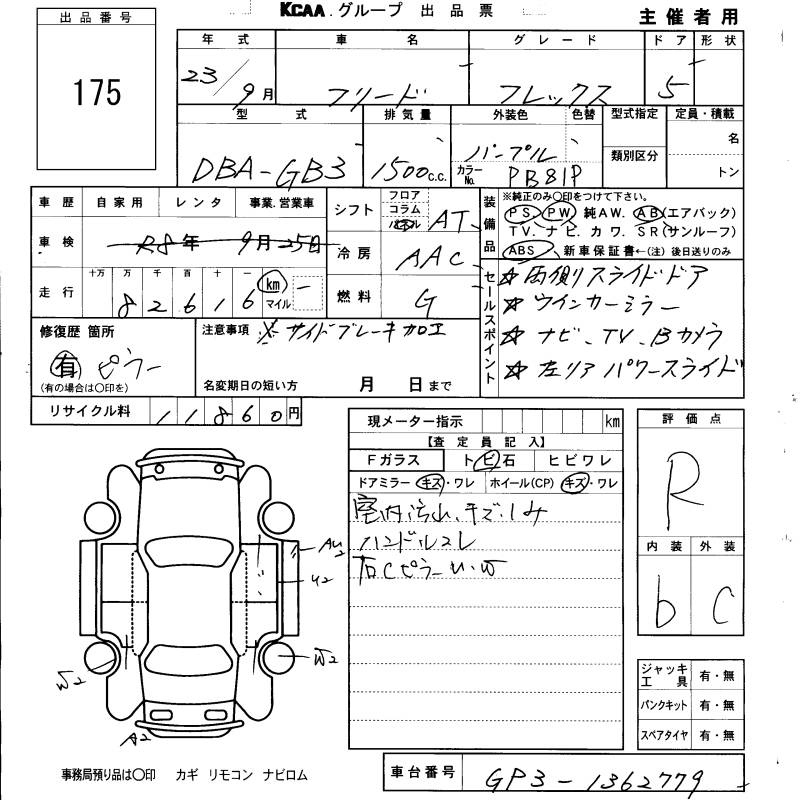 KCAA.グループ 出品票
主催者用
出品番号
175
年式 車名 グレード ドア 形状
23/9月 フリード フレックス 5
型式 排気量 外装色 色替 型式指定 定員・積載
DBA-GB3 1500c.c. パープル カラーNo. PB81P 類別区分 名 トン
車歴 自家用 レンタ 事業.営業車
車検 R8年 9月25日
走行 十万 万 千 百 十 一
82616 km マイル
シフト フロア コラム パネル AT
冷房 AAC
燃料 G
装備品
※純正のみ〇印をつけて下さい。
PS. PW 純AW. AB(エアバック)
TV. ナビ. カワ. SR(サンルーフ)
ABS 新車保証書←(注)後日送りのみ
セールスポイント
☆両側スライドドア
☆ウインカーミラー
☆ナビ、TV、Bカメラ
☆左リアパワースライド
修復歴 箇所
有 ピラー
(有の場合は〇印を)
注意事項 ※サイドブレーキ加工
名変期日の短い方 月 日まで
リサイクル料 11860円
現メーター指示 km
【査定員記入】
Fガラス トビ石 ヒビワレ
ドアミラー キズ・ワレ ホイール(CP) キズ・ワレ
室内汚れ、キズ、しみ
ハンドルスレ
右Cピラー U・W
評価点
R
内装 外装
b C
AU2
U2
W2
W2
A2
ジャッキ工具 有・無
パンクキット 有・無
スペアタイヤ 有・無
事務局預り品は〇印 カギ リモコン ナビロム
車台番号 GP3-1362779